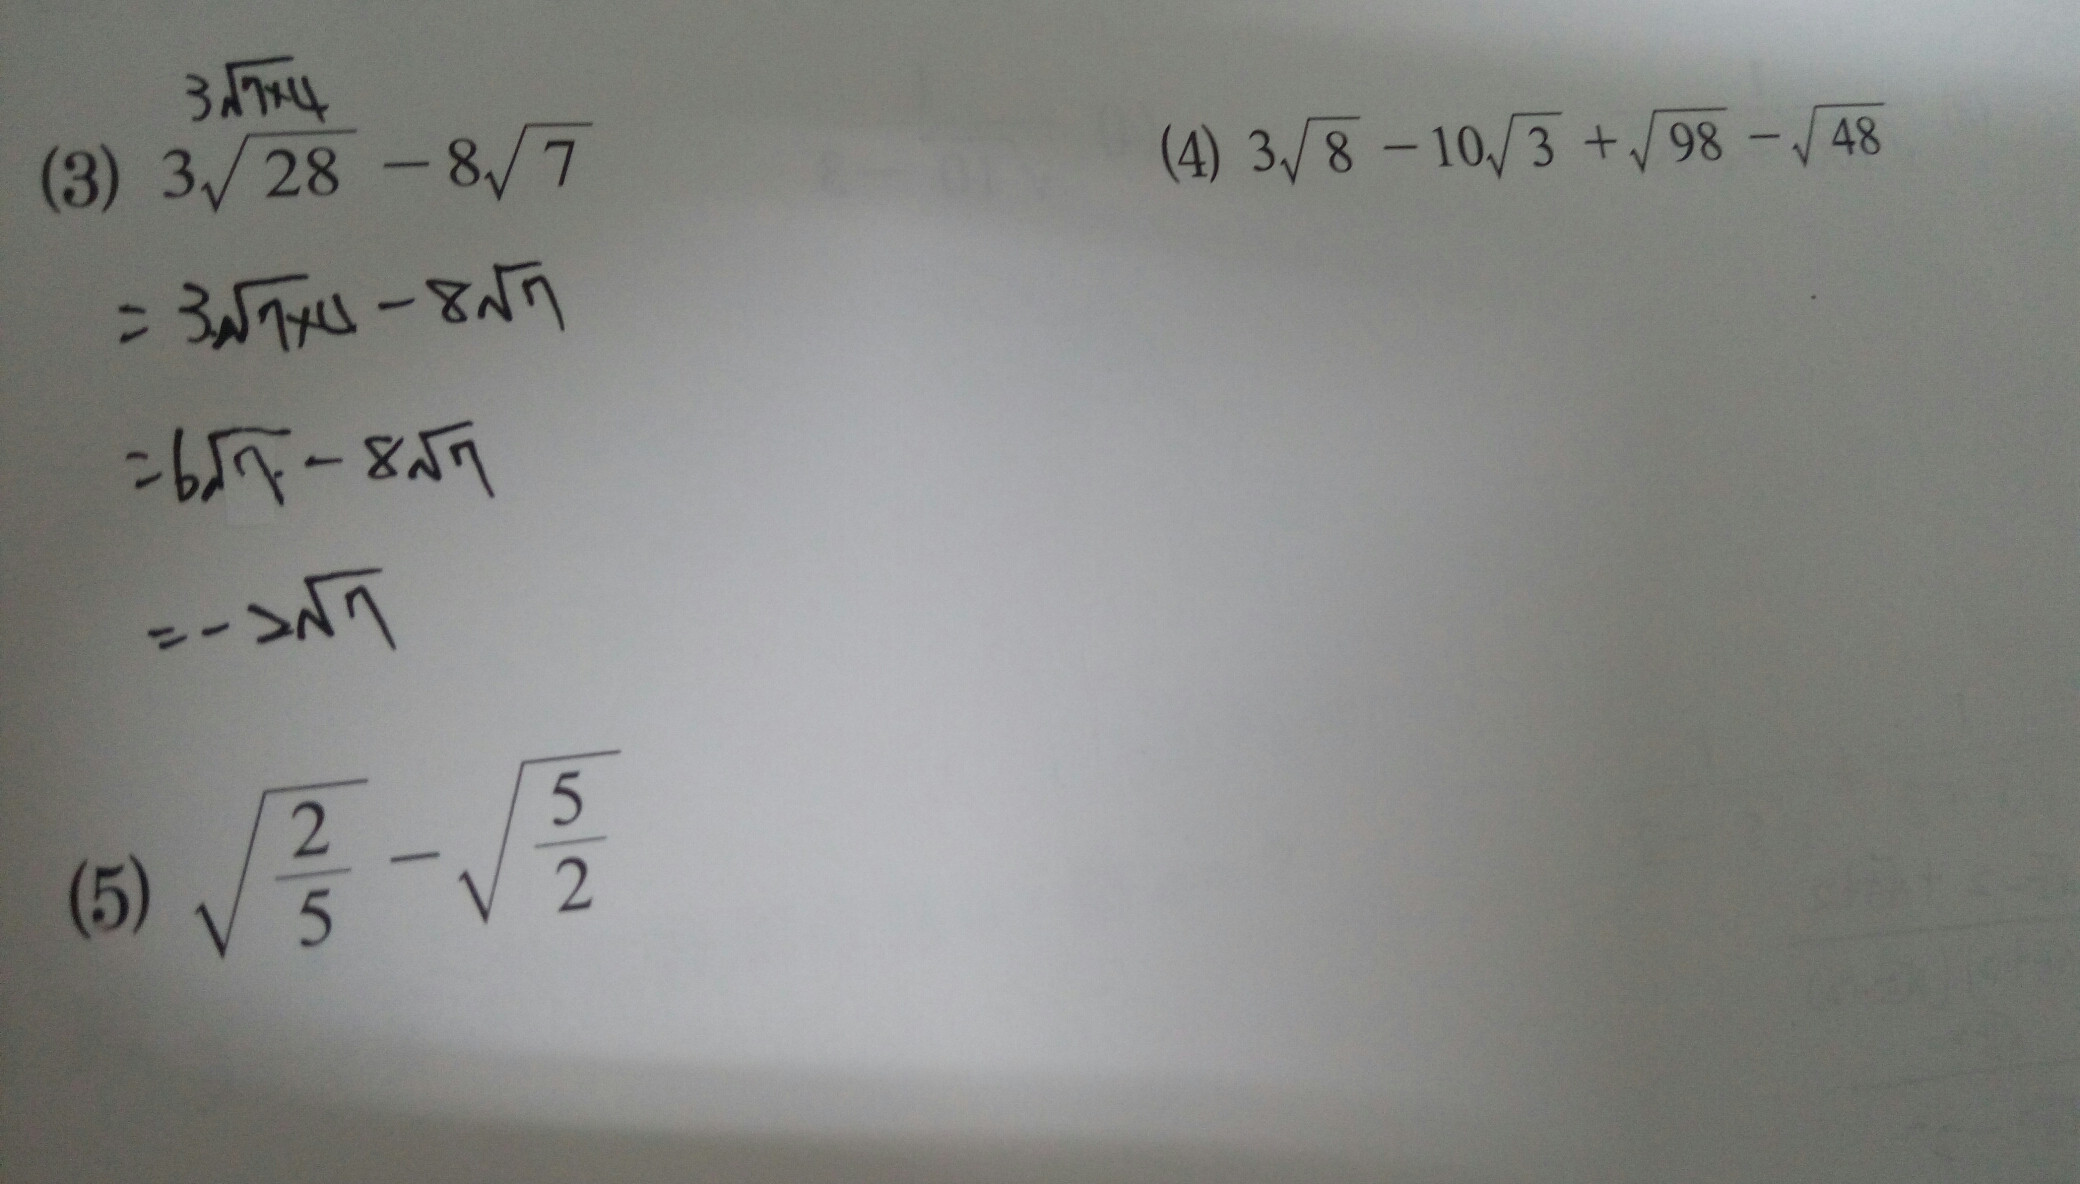 3√7×4
(3) 3√28 − 8√7
= 3√7×4 − 8√7
= 6√7 − 8√7
= −2√7
(4) 3√8 − 10√3 + √98 − √48
(5) √(2/5) − √(5/2)